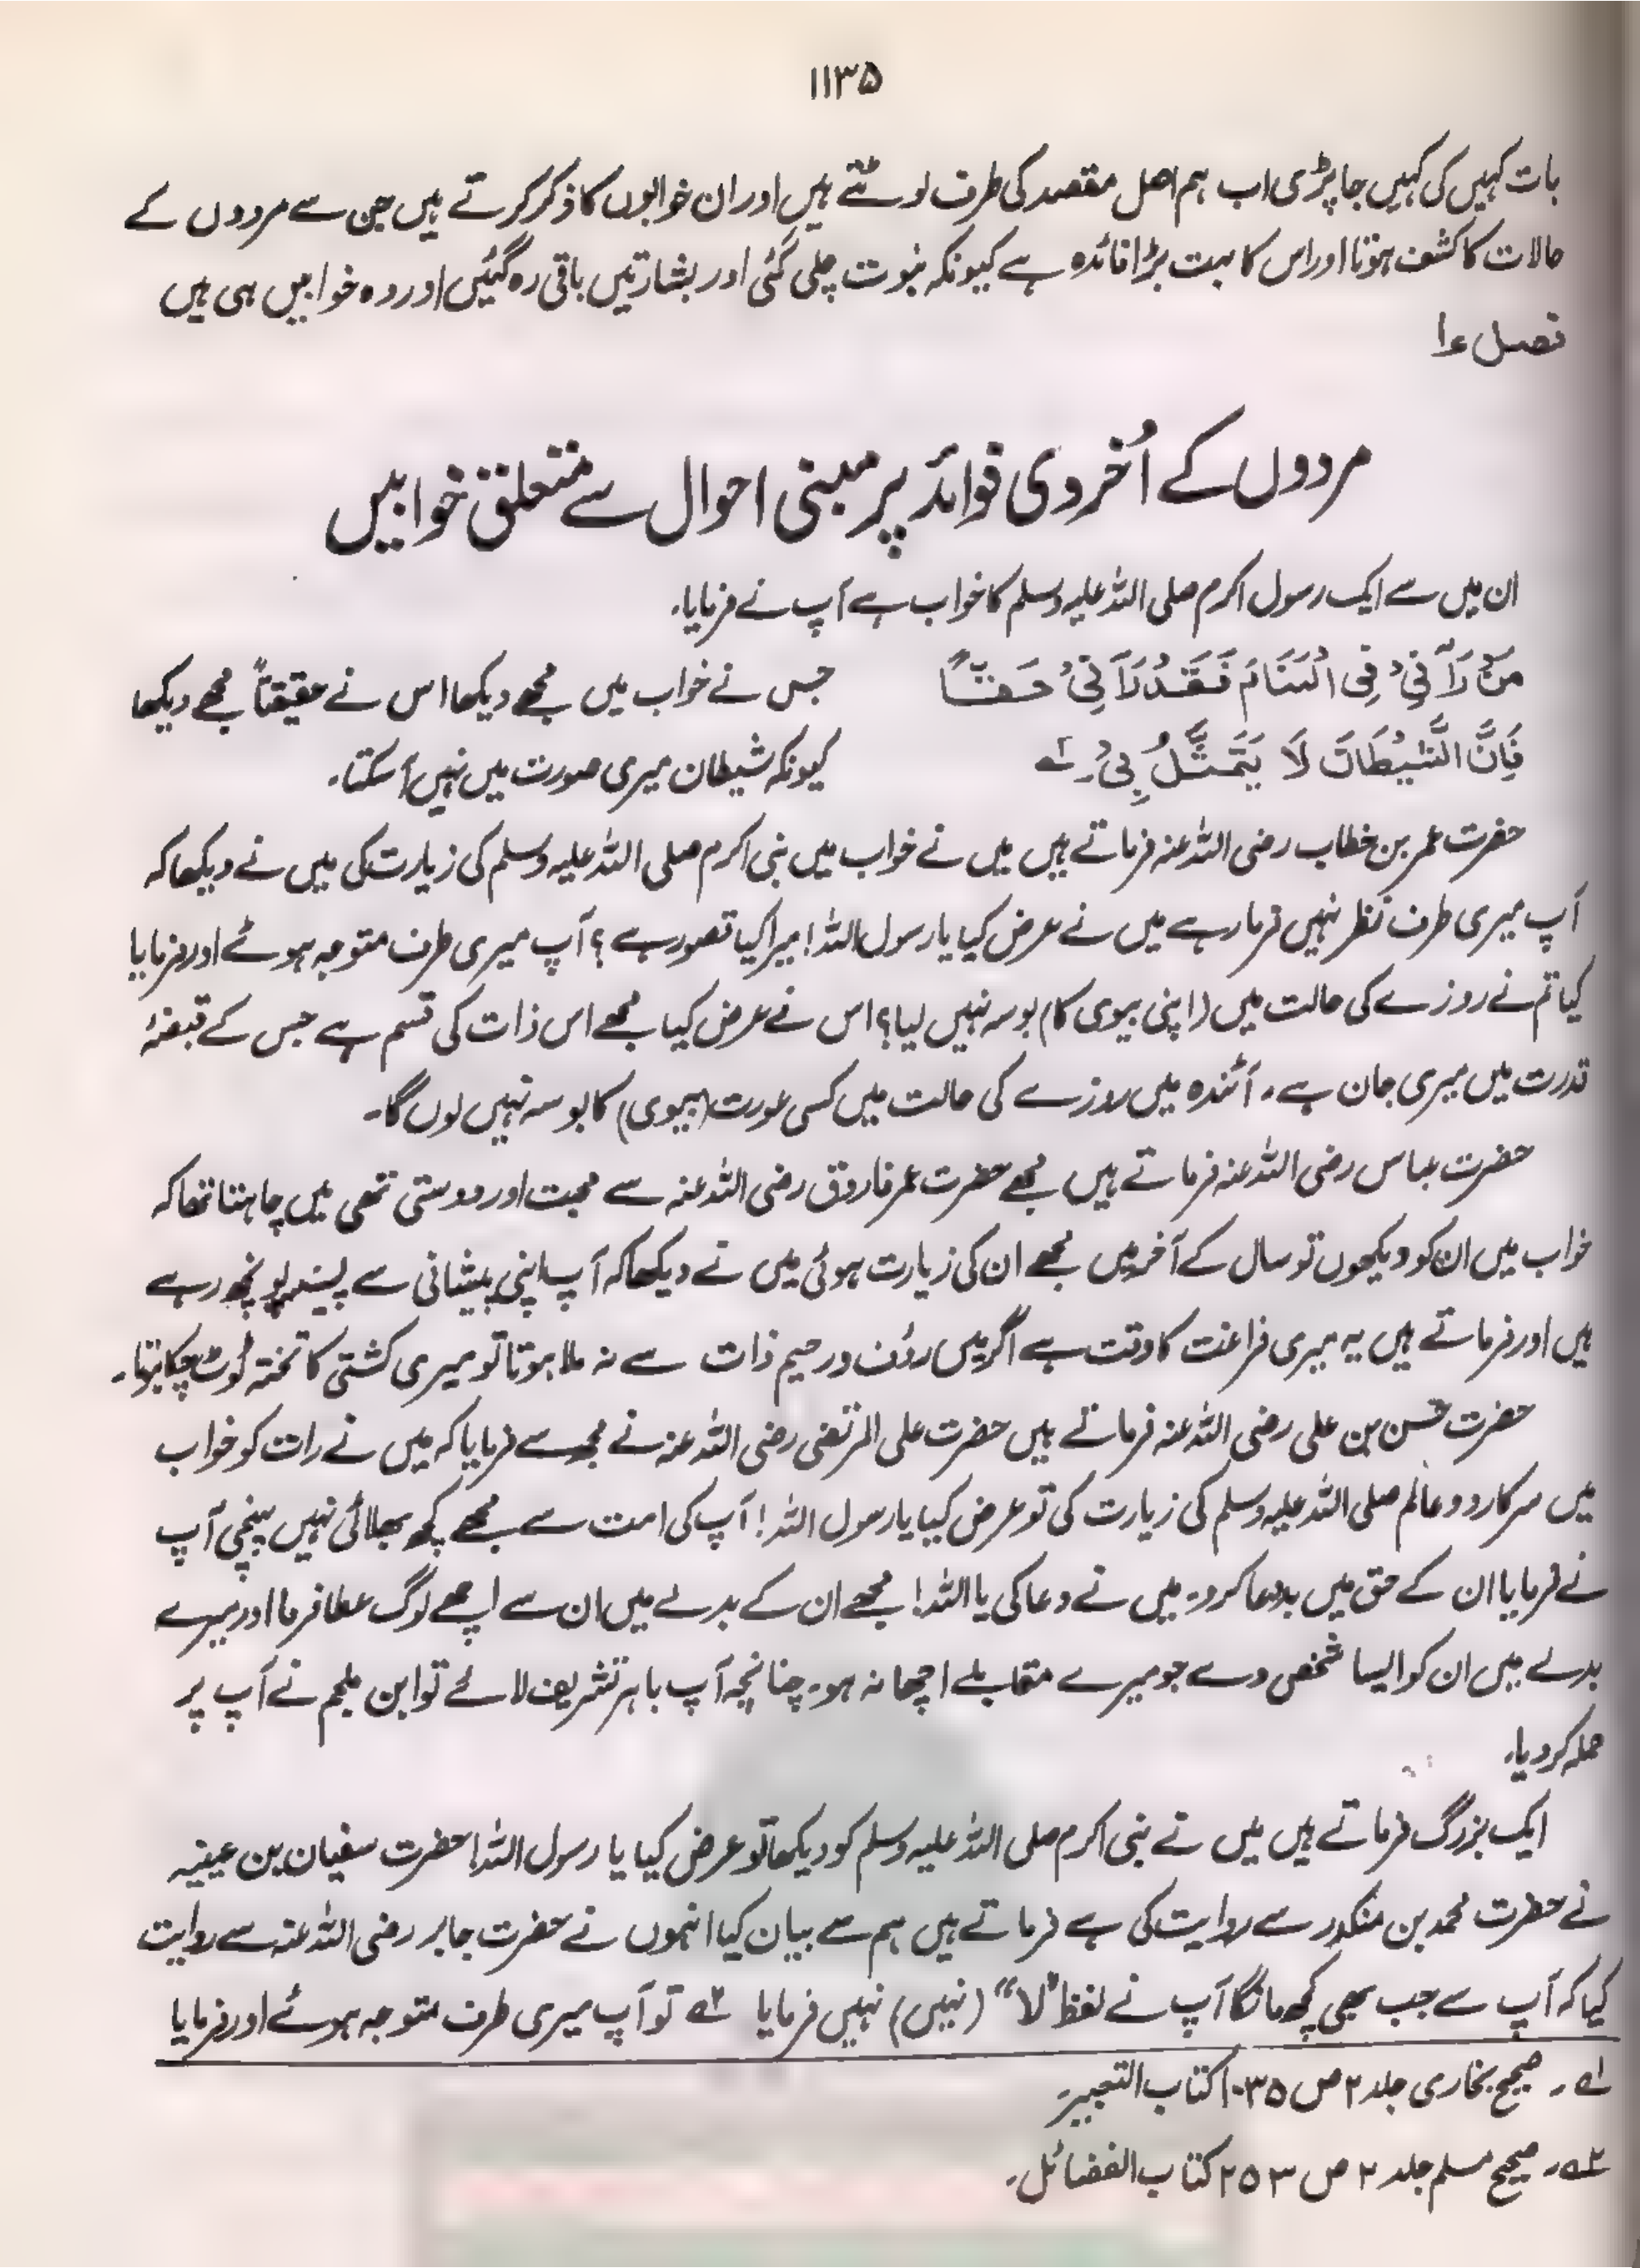 ۱۱۳۵
بات کہیں کی کہیں جا پڑی اب ہم اصل مقصد کی طرف لوٹتے ہیں اور ان خوابوں کا ذکر کرتے ہیں جن سے مردوں کے
حالات کا کشف ہوتا اور اس کا بہت بڑا فائدہ ہے کیونکہ نبوت چلی گئی اور بشارتیں باقی رہ گئیں اور وہ خوابیں ہی ہیں
فصل ۱
مردوں کے اُخروی فوائد پر مبنی احوال سے متعلق خوابیں
ان میں سے ایک رسول اکرم صلی اللہ علیہ وسلم کا خواب ہے آپ نے فرمایا۔
مَنْ رَآنِیْ فِی الْمَنَامِ فَقَدْ رَآنِیْ حَقًّا جس نے خواب میں مجھے دیکھا اس نے حقیقتاً مجھے دیکھا
فَاِنَّ الشَّیْطَانَ لَا یَتَمَثَّلُ بِیْ۔ ؎۱ کیونکہ شیطان میری صورت میں نہیں آ سکتا۔
حضرت عمر بن خطاب رضی اللہ عنہ فرماتے ہیں میں نے خواب میں نبی اکرم صلی اللہ علیہ وسلم کی زیارت کی میں نے دیکھا کہ
آپ میری طرف نظر نہیں فرما رہے میں نے عرض کیا یا رسول اللہ! میرا کیا قصور ہے؟ آپ میری طرف متوجہ ہوئے اور فرمایا
کیا تم نے روزے کی حالت میں (اپنی بیوی کا) بوسہ نہیں لیا؟ اس نے عرض کیا مجھے اس ذات کی قسم ہے جس کے قبضۂ
قدرت میں میری جان ہے۔ آئندہ میں روزے کی حالت میں کسی عورت (بیوی) کا بوسہ نہیں لوں گا۔
حضرت عباس رضی اللہ عنہ فرماتے ہیں مجھے حضرت عمر فاروق رضی اللہ عنہ سے محبت اور دوستی تھی میں چاہتا تھا کہ
خواب میں ان کو دیکھوں تو سال کے آخر میں مجھے ان کی زیارت ہوئی میں نے دیکھا کہ آپ اپنی پیشانی سے پسینہ پونچھ رہے
ہیں اور فرماتے ہیں یہ میری فراغت کا وقت ہے اگر میں رؤف و رحیم ذات سے نہ ملا ہوتا تو میری کشتی کا تختہ ٹوٹ چکا ہوتا۔
حضرت حسن بن علی رضی اللہ عنہ فرماتے ہیں حضرت علی المرتضی رضی اللہ عنہ نے مجھ سے فرمایا کہ میں نے رات کو خواب
میں سرکار دو عالم صلی اللہ علیہ وسلم کی زیارت کی تو عرض کیا یا رسول اللہ! آپ کی امت سے مجھے کچھ بھلائی نہیں پہنچی آپ
نے فرمایا ان کے حق میں بددعا کرو۔ میں نے دعا کی یا اللہ! مجھے ان کے بدلے میں ان سے اچھے لوگ عطا فرما اور میرے
بدلے میں ان کو ایسا شخص دے جو میرے مقابلے اچھا نہ ہو۔ چنانچہ آپ باہر تشریف لائے تو ابن ملجم نے آپ پر
حملہ کر دیا۔
ایک بزرگ فرماتے ہیں میں نے نبی اکرم صلی اللہ علیہ وسلم کو دیکھا تو عرض کیا یا رسول اللہ! حضرت سفیان بن عیینہ
نے حضرت محمد بن منکدر سے روایت کی ہے فرماتے ہیں ہم سے بیان کیا انہوں نے حضرت جابر رضی اللہ عنہ سے روایت
کیا کہ آپ سے جب بھی کچھ مانگا آپ نے لفظ "لا" (نہیں) نہیں فرمایا ؎۲ تو آپ میری طرف متوجہ ہوئے اور فرمایا
؎۱۔ صحیح بخاری جلد ۲ ص ۱۰۳۵ کتاب التعبیر۔
؎۲۔ صحیح مسلم جلد ۲ ص ۲۵۳ کتاب الفضائل۔